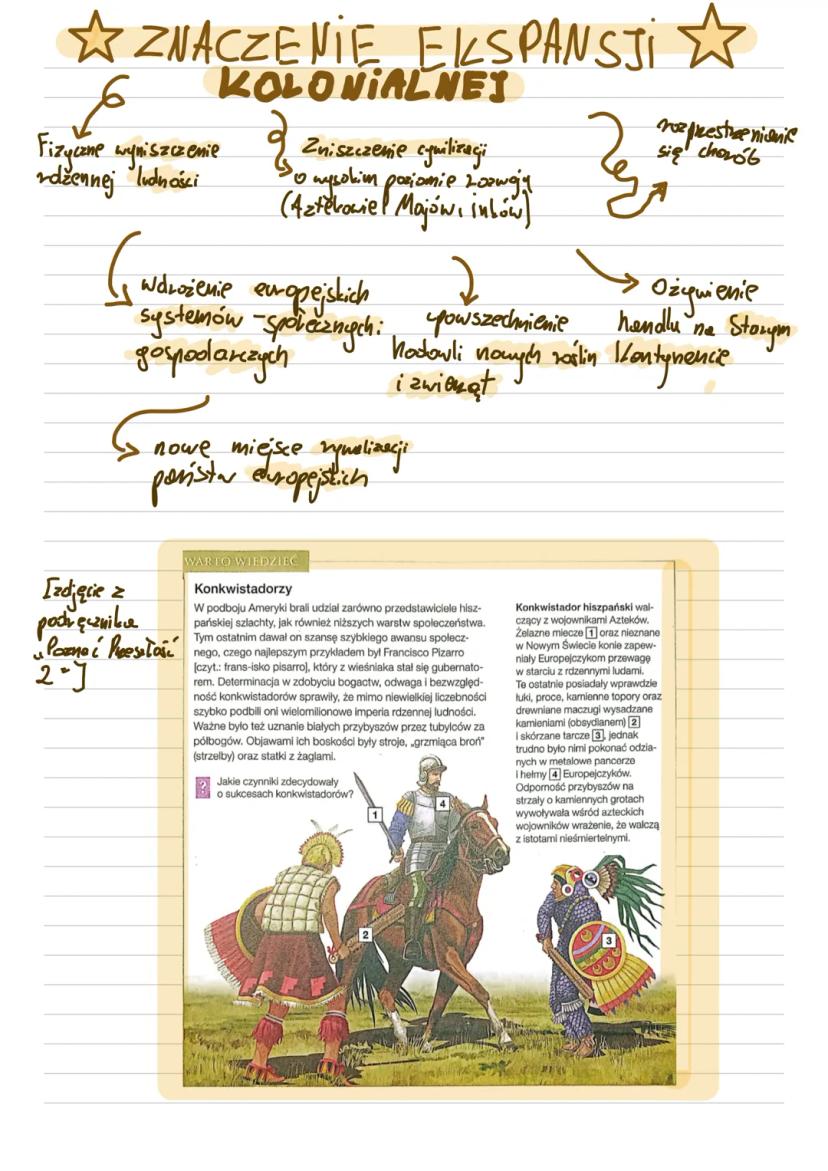 ZNACZENIE EKSPANSJI
KOLONIALNEJ
Fizyczne wyniszczenie
rdzennej ludności
Zniszczenie cywilizacji
o wysokim poziomie rozwoju
(Azteków, Majów i Inków)
rozprzestrzenienie
się chorób
wdrożenie europejskich
systemów społecznych i
gospodarczych
upowszechnienie
hodowli nowych roślin
i zwierząt
Ożywienie
handlu na Starym
Kontynencie
nowe miejsce rywalizacji
państw europejskich
[zdjęcie z
podręcznika
„Poznać Przeszłość
2"]
WARTO WIEDZIEĆ
Konkwistadorzy
W podboju Ameryki brali udział zarówno przedstawiciele hisz-
pańskiej szlachty, jak również niższych warstw społeczeństwa.
Tym ostatnim dawał on szansę szybkiego awansu społecz-
nego, czego najlepszym przykładem był Francisco Pizarro
[czyt.: frans-isko pisarro], który z wieśniaka stał się gubernato-
rem. Determinacja w zdobyciu bogactw, odwaga i bezwzględ-
ność konkwistadorów sprawiły, że mimo niewielkiej liczebności
szybko podbili oni wielomilionowe imperia rdzennej ludności.
Ważne było też uznanie białych przybyszów przez tubylców za
półbogów. Objawami ich boskości były stroje, „grzmiąca broń"
(strzelby) oraz statki z żaglami.
? Jakie czynniki zdecydowały
o sukcesach konkwistadorów?
Konkwistador hiszpański wal-
czący z wojownikami Azteków.
Żelazne miecze 1 oraz nieznane
w Nowym Świecie konie zapew-
niały Europejczykom przewagę
w starciu z rdzennymi ludami.
Te ostatnie posiadały wprawdzie
łuki, proce, kamienne topory oraz
drewniane maczugi wysadzane
kamieniami (obsydianem) 2
i skórzane tarcze 3, jednak
trudno było nimi pokonać odzia-
nych w metalowe pancerze
i hełmy 4 Europejczyków.
Odporność przybyszów na
strzały o kamiennych grotach
wywoływała wśród azteckich
wojowników wrażenie, że walczą
z istotami nieśmiertelnymi.
1
4
2
3